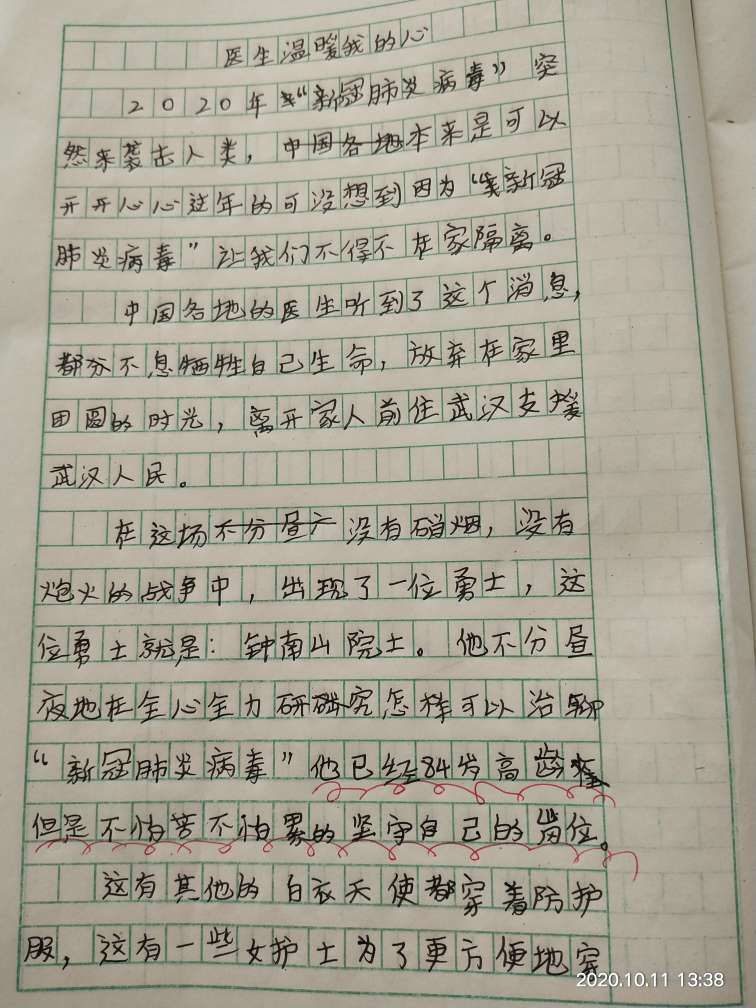 医生温暖我的心
2020年“新冠肺炎病毒”突
然来袭击人类，中国各地本来是可以
开开心心过年的可没想到因为“新冠
肺炎病毒”让我们不得不在家隔离。
中国各地的医生听到了这个消息，
都分不息牺牲自己生命，放弃在家里
团圆的时光，离开家人前往武汉支援
武汉人民。
在这场不分昼产没有硝烟，没有
炮火的战争中，出现了一位勇士，这
位勇士就是：钟南山院士。他不分昼
夜地在全心全力研究怎样可以治聊
“新冠肺炎病毒”他已经84岁高龄
但是不怕苦不怕累的坚守自己的岗位。
这有其他的白衣天使都穿着防护
服，这有一些女护士为了更方便地穿
2020.10.11 13:38